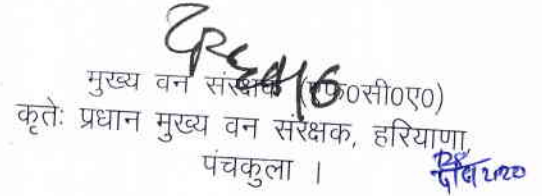 मुख्य वन संरक्षक (एफ०सी०ए०)
कृतेः प्रधान मुख्य वन संरक्षक, हरियाणा,
पंचकुला ।